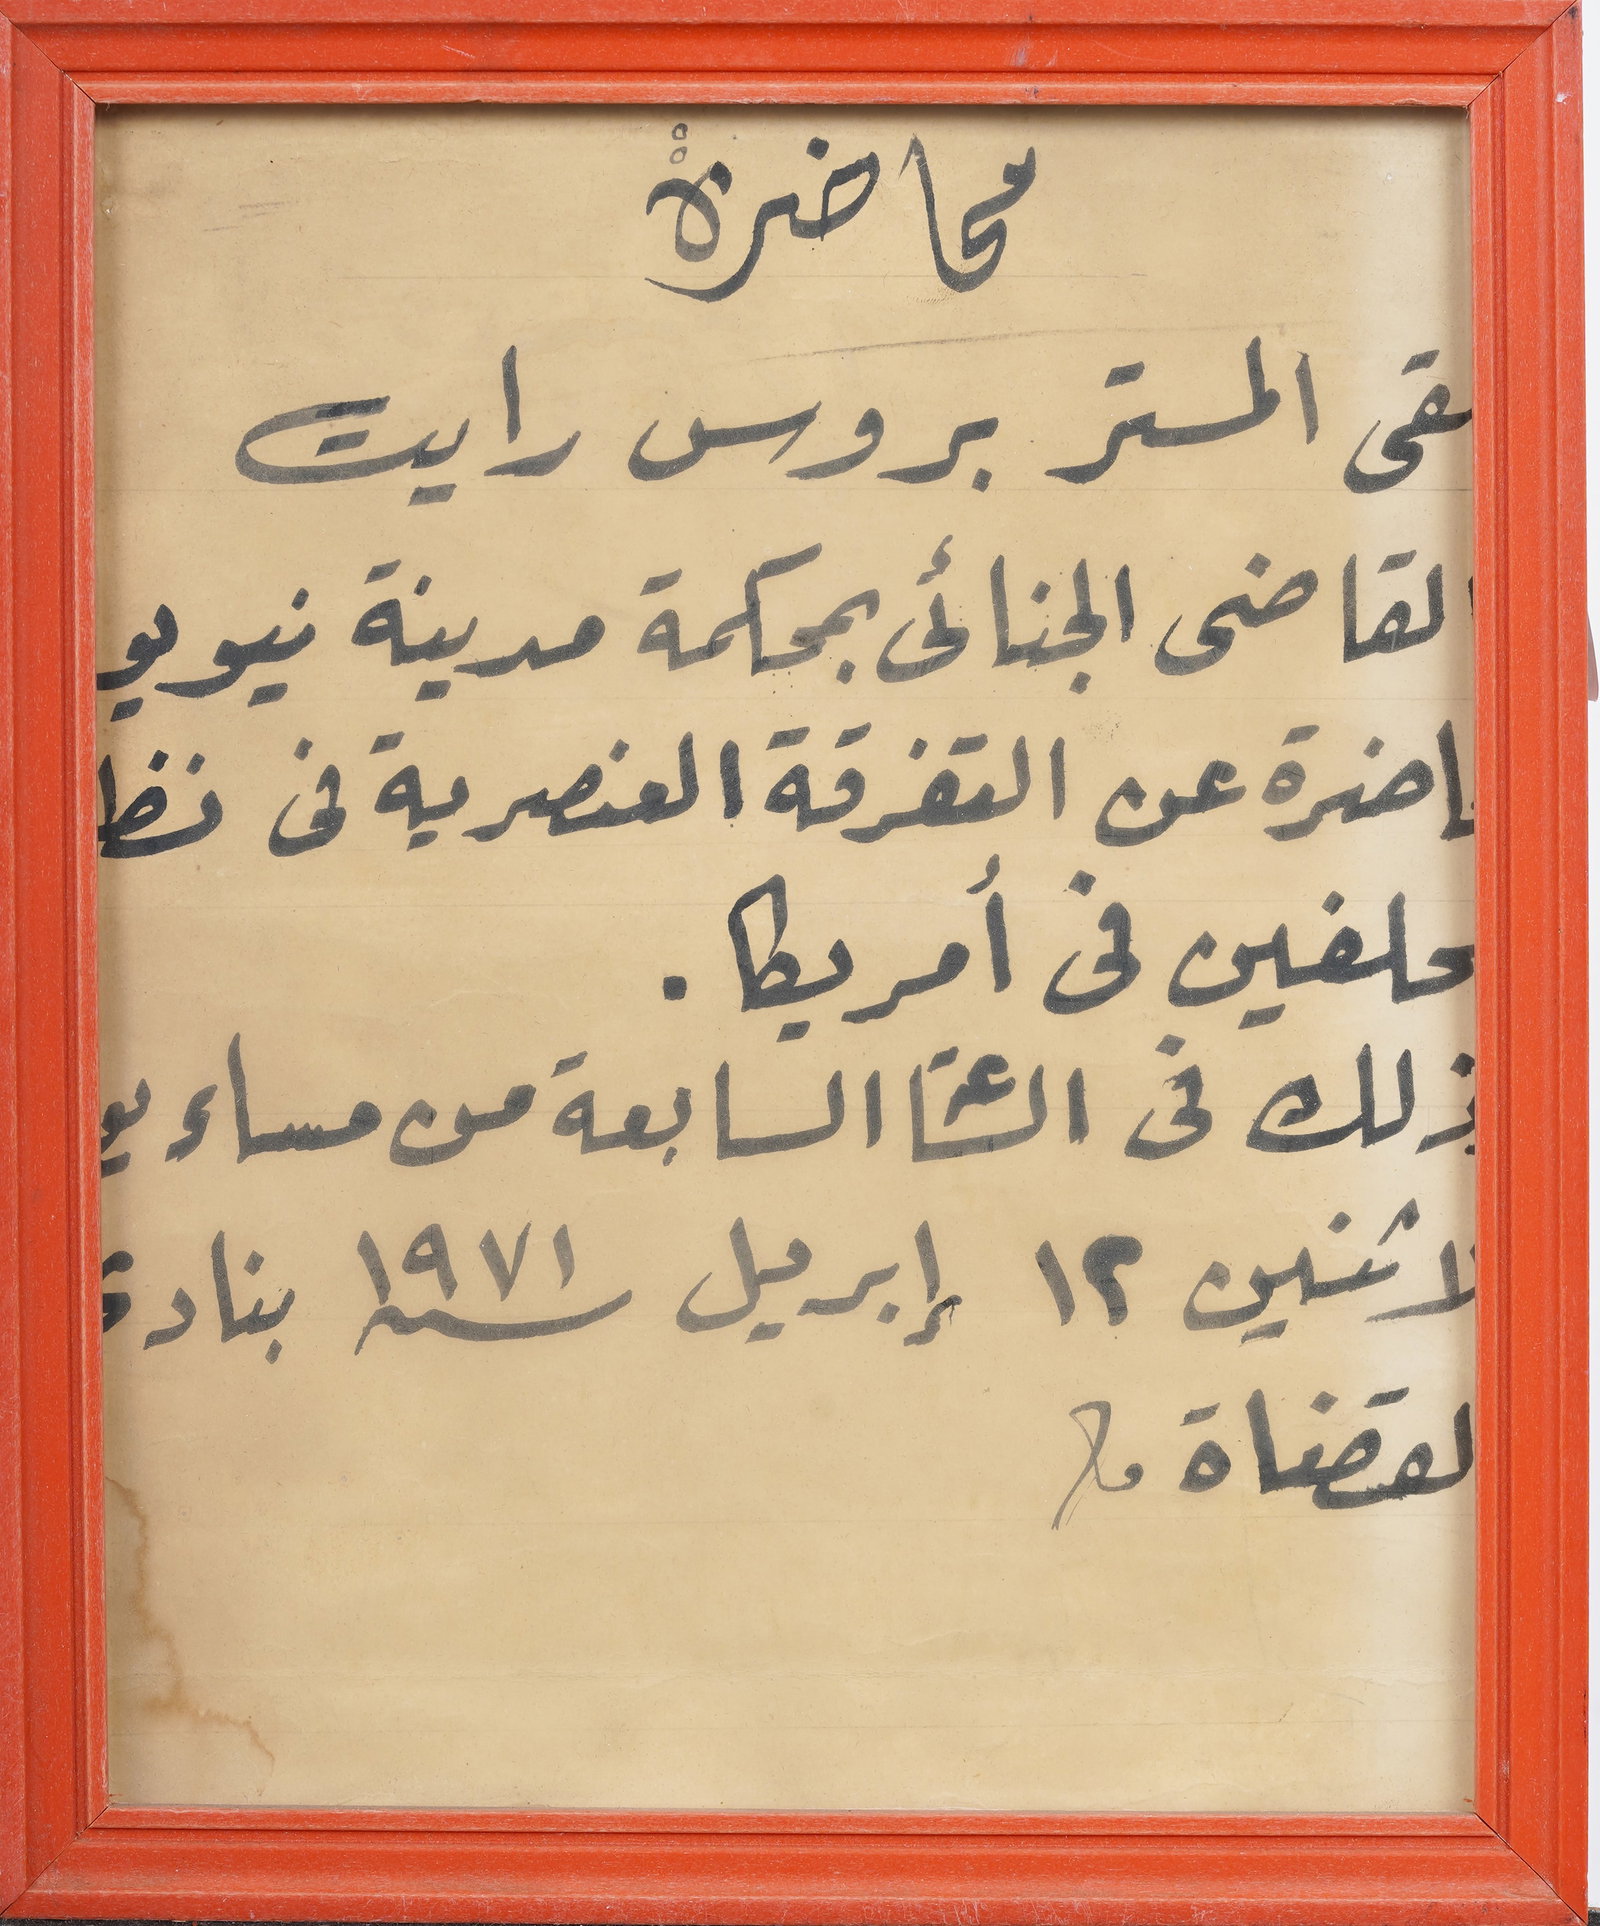 محاضرة
لقى المستر بروس رايت
القاضى الجنائى بمحكمة مدينة نيويو
اضرة عن التفرقة العنصرية فى نظا
حلفين فى أمريكا .
ذلك فى الساعة السابعة من مساء يو
لاثنين ١٢ إبريل سنة ١٩٧١ بنادى
لقضاة